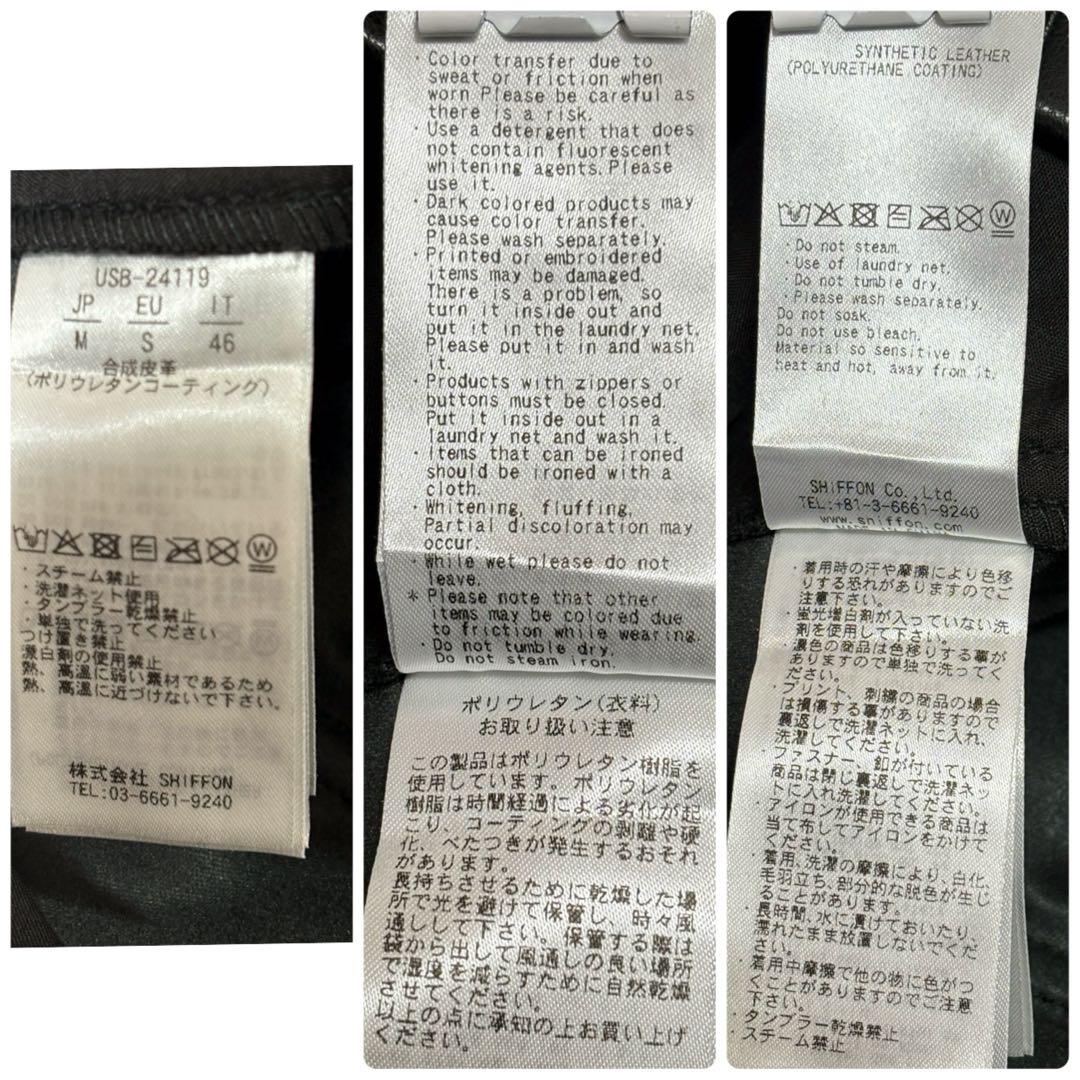 USB-24119
JP EU IT
M S 46
合成皮革
(ポリウレタンコーティング)
・スチーム禁止
・洗濯ネット使用
・タンブラー乾燥禁止
・単独で洗ってください
つけ置き禁止
漂白剤の使用禁止
熱、高温に弱い素材であるため
熱、高温に近づけないで下さい。
株式会社 SHIFFON
TEL:03-6661-9240
・Color transfer due to
sweat or friction when
worn Please be careful as
there is a risk.
・Use a detergent that does
not contain fluorescent
whitening agents. Please
use it.
・Dark colored products may
cause color transfer.
Please wash separately.
・Printed or embroidered
items may be damaged.
There is a problem, so
turn it inside out and
put it in the laundry net.
Please put it in and wash
it.
・Products with zippers or
buttons must be closed.
Put it inside out in a
laundry net and wash it.
・Items that can be ironed
should be ironed with a
cloth.
・Whitening, fluffing.
Partial discoloration may
occur.
・While wet please do not
leave.
* Please note that other
items may be colored due
to friction while wearing.
・Do not tumble dry,
Do not steam iron.
ポリウレタン(衣料)
お取り扱い注意
この製品はポリウレタン樹脂を
使用しています。ポリウレタン
樹脂は時間経過による劣化が起
こり、コーティングの剥離や硬
化、べたつきが発生するおそれ
があります。
長持ちさせるために乾燥した場
所で光を避けて保管し、時々風
通しして下さい。保管する際は
袋から出して風通しの良い場所
で湿度を減らすために自然乾燥
させてください。
以上の点に承知の上お買い上げ
ください。
SYNTHETIC LEATHER
(POLYURETHANE COATING)
・Do not steam.
・Use of laundry net.
・Do not tumble dry.
・Please wash separately.
Do not soak.
Do not use bleach.
Material so sensitive to
heat and hot, away from it.
SHIFFON Co.,Ltd.
TEL:+81-3-6661-9240
www.shiffon.com
・着用時の汗や摩擦により色移
りする恐れがありますのでご
注意下さい。
・蛍光増白剤が入っていない洗
剤を使用して下さい。
・濃色の商品は色移りする事が
ありますので単独で洗ってく
ださい。
・プリント、刺繍の商品の場合
は損傷する事がありますので
裏返しで洗濯ネットに入れ、
洗濯してください。
・ファスナー、釦が付いている
商品は閉じ裏返しで洗濯ネッ
トに入れ洗濯してください。
・アイロンが使用できる商品は
当て布してアイロンをかけて
ください。
・着用、洗濯の摩擦により、白化、
毛羽立ち、部分的な脱色が生じ
ることがあります。
・長時間、水に漬けておいたり、
濡れたまま放置しないでくだ
さい。
・着用中摩擦で他の物に色がつ
くことがありますのでご注意
下さい。
・タンブラー乾燥禁止
・スチーム禁止